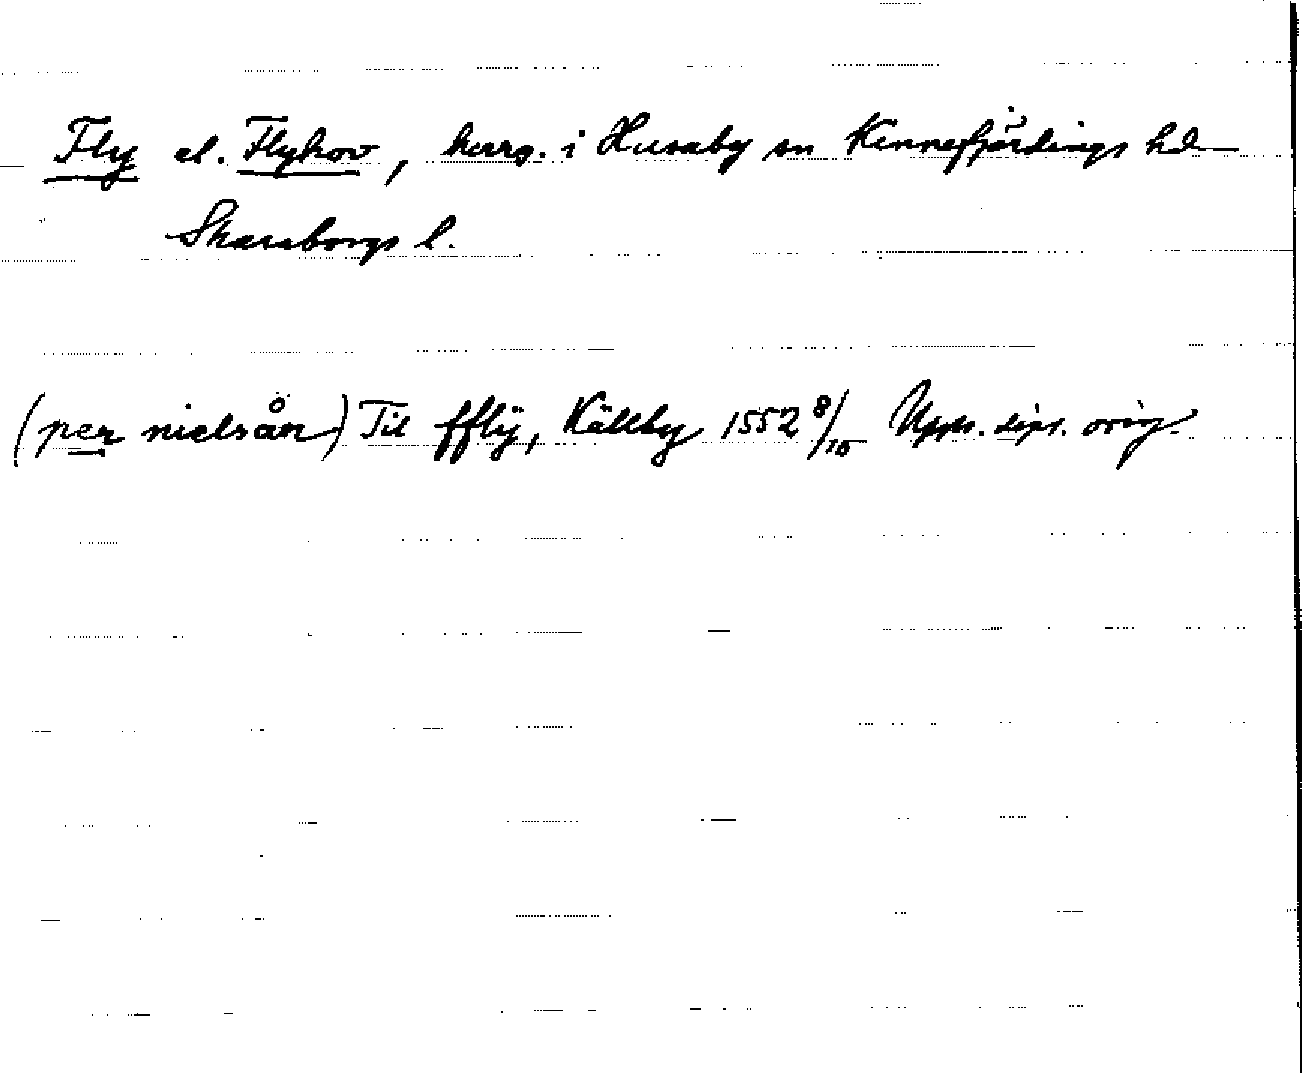 Fly el. Flyhov, herrg. i Husaby sn Kinnefjärdings hd
Skaraborgs l.
(per nielsån) Til ffly̎, Källby 1552 8/10 Upps. dipl. orig.